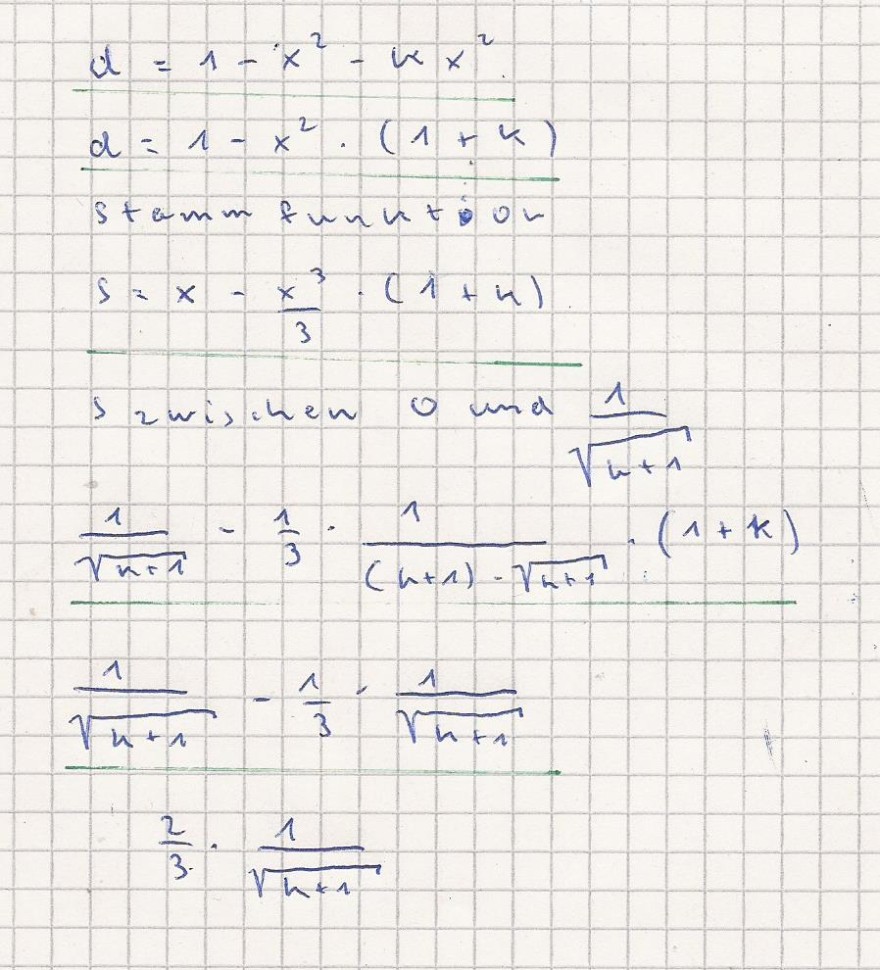 d = 1 - x² - k x²
d = 1 - x² · (1 + k)
Stammfunktion
S = x - x³/3 · (1 + k)
S zwischen 0 und 1/√(k+1)
1/√(k+1) - 1/3 · 1/((k+1) · √(k+1)) · (1 + k)
1/√(k+1) - 1/3 · 1/√(k+1)
2/3 · 1/√(k+1)